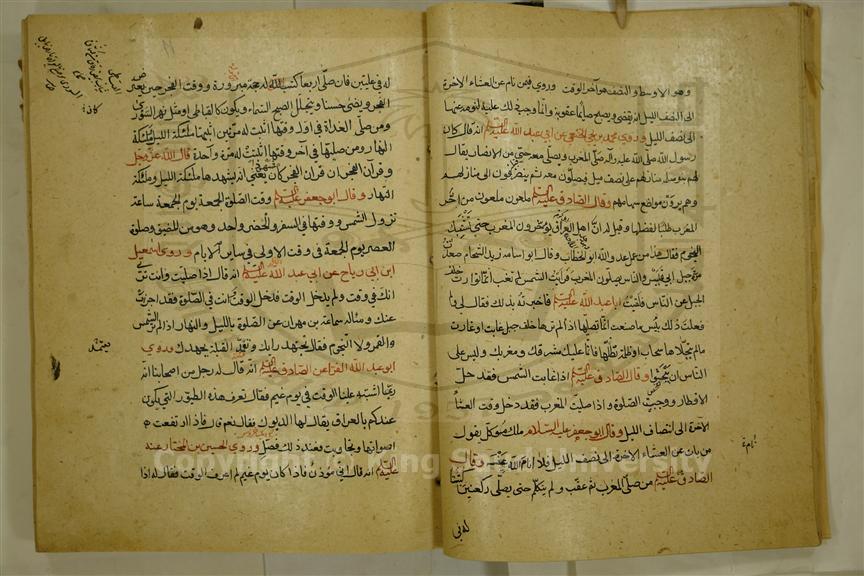 وهو الاوسط والنصف هو آخر الوقت وروى فيمن نام عن العشاء الاخرة
الى نصف الليل انه يقضى ويصبح صايما عقوبة وانما وجب ذلك عليه لنومه عنها
الى نصف الليل وروى محمد بن يحيى الخثعمى عن ابى عبد الله عليه السلام انه قال كان
رسول الله صلى الله عليه واله يصلى المغرب ويصلى معه حى من الانصار يقال
لهم بنو سلمه منازلهم على نصف ميل فيصلون معه ثم ينصرفون الى منازلهم
وهم يرون مواضع سهامهم وقال الصادق عليه السلام ملعون ملعون من اخر
المغرب طلبا لفضلها وقيل له ان اهل العراق يؤخرون المغرب حتى تشتبك
النجوم فقال هذا من عمل عدو الله ابو الخطاب وقال ابو اسامه زيد الشحام صعدت
مرة جبل ابى قبيس والناس يصلون المغرب فرأيت الشمس لم تغب انما توارت خلف
الجبل عن الناس فلقيت ابا عبد الله عليه السلام فاخبرته بذلك فقال لى ولم
فعلت ذلك بئس ما صنعت انما تصليها اذا لم ترها خلف جبل غابت او غارت
مالم يتجللها سحاب او ظلمة تظلها فانما عليك مشرقك ومغربك وليس على
الناس ان يبحثوا وقال الصادق عليه السلام اذا غابت الشمس فقد حل
الافطار ووجبت الصلوة واذا صليت المغرب فقد دخل وقت العشاء
الاخرة الى انتصاف الليل وقال ابو جعفر عليه السلام ملك موكل يقول
من بات عن العشاء الاخرة الى نصف الليل فلا انام الله عينه وقال
الصادق عليه السلام من صلى المغرب ثم عقب ولم يتكلم حتى يصلى ركعتين كتبتا
له فى عليين فان صلى اربعا كتب الله له حجة مبرورة ووقت الفجر حين يعترض
الفجر ويضىء حسنا ويتجلل الصبح السماء ويكون كالقباطى او مثل نهر السورى
ومن صلى الغداة فى اول وقتها اثبتت له مرتين اثبتها ملئكة الليل وملئكة
النهار ومن صليها فى آخر وقتها اثبتت له مرة واحدة قال الله عز وجل
وقرآن الفجر ان قرآن الفجر كان مشهودا يعنى انه يشهدها ملئكة الليل وملئكة
النهار وقال ابو جعفر عليه السلام وقت الصلوة الجمعة يوم الجمعة ساعة
تزول الشمس ووقتها فى السفر والحضر واحد وهو من المضيق وصلوة
العصر يوم الجمعة فى وقت الاولى فى ساير الايام وروى اسمعيل
ابن ابى رباح عن ابى عبد الله عليه السلام انه قال اذا صليت وانت ترى
انك فى وقت ولم يدخل الوقت فدخل الوقت وانت فى الصلوة فقد اجزأت
عنك وسئاله سماعة بن مهران عن الصلوة بالليل والنهار اذا لم تر الشمس
والقمر ولا النجوم فقال تجتهد رايك وتعمد القبلة بجهدك وروى
ابو عبد الله الفراء عن الصادق عليه السلام انه قال له رجل من اصحابنا انه
ربما اشتبه علينا الوقت فى يوم غيم فقال تعرف هذه الطيور التى تكون
عندكم بالعراق يقال لها الديوك فقال نعم قال فاذا ارتفعت
اصواتها وتجاوبت فعند ذلك فصل وروى الحسين بن المختار عنه
عليه السلام انه قال انى مؤذن فاذا كان يوم غيم لم اعرف الوقت فقال له اذا